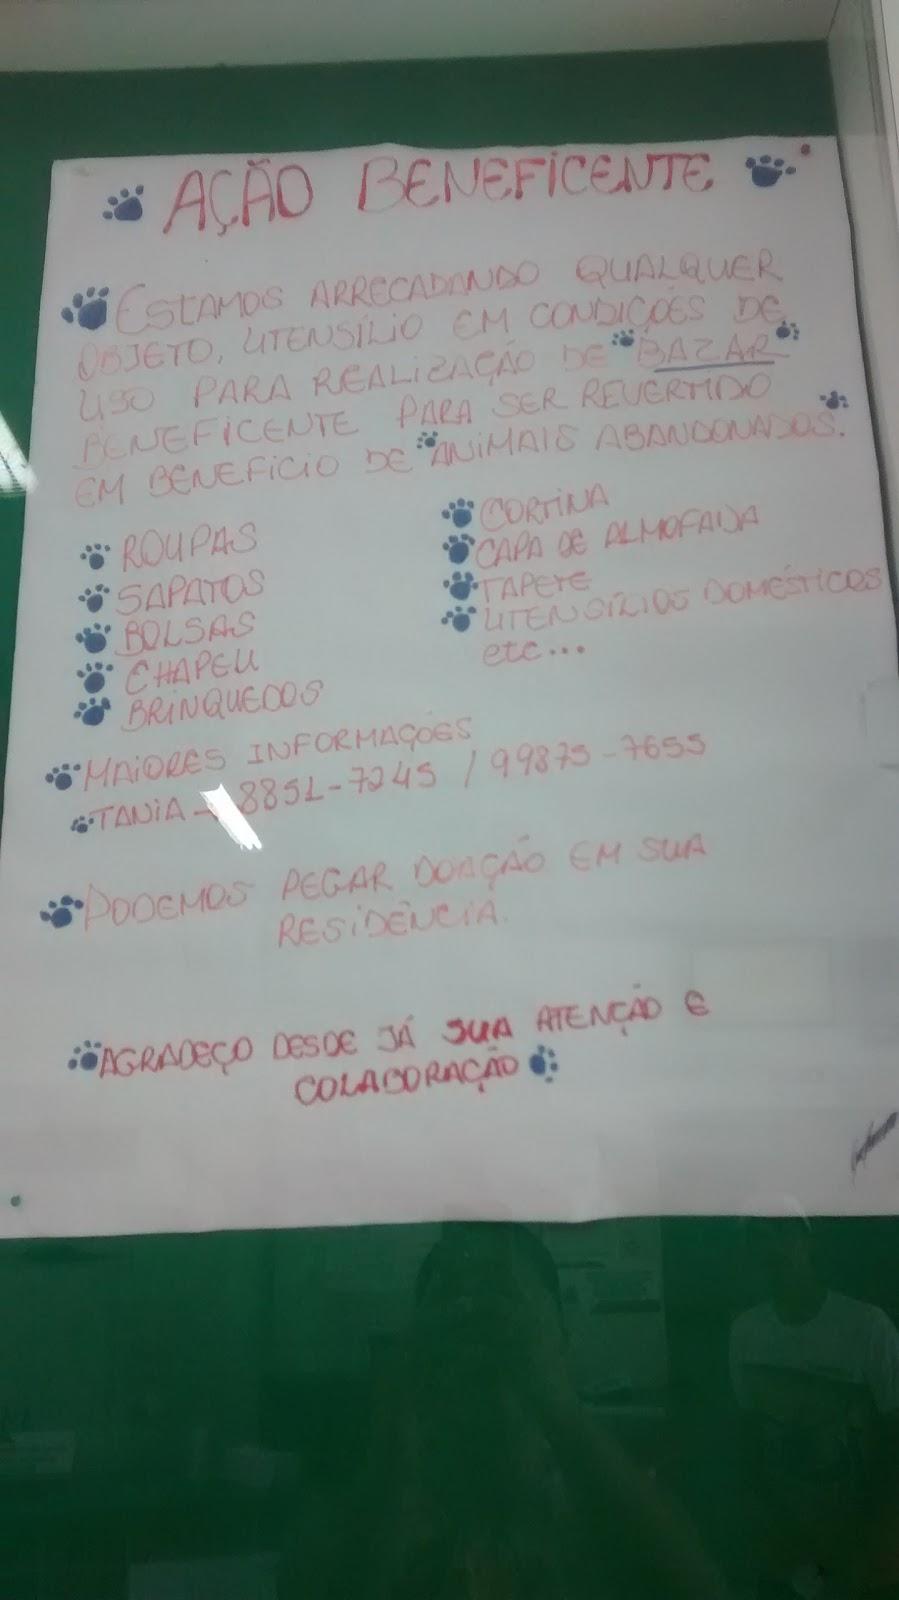 AÇÃO BENEFICENTE
ESTAMOS ARRECADANDO QUALQUER
OBJETO, UTENSÍLIO EM CONDIÇÕES DE
USO PARA REALIZAÇÃO DE BAZAR
BENEFICENTE PARA SER REVERTIDO
EM BENEFICIO DE ANIMAIS ABANDONADOS.
ROUPAS
SAPATOS
BOLSAS
CHAPEU
BRINQUEDOS
CORTINA
CAPA DE ALMOFADA
TAPETE
UTENSÍLIOS DOMÉSTICOS
etc...
MAIORES INFORMAÇÕES
TANIA - 8851-7245 / 99875-7655
PODEMOS PEGAR DOAÇÃO EM SUA
RESIDÊNCIA.
AGRADEÇO DESDE JÁ SUA ATENÇÃO E
COLABORAÇÃO